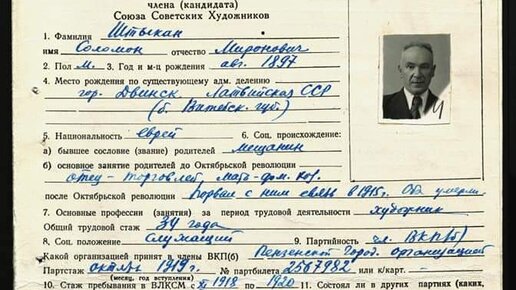 члена (кандидата)
Союза Советских Художников
1. Фамилия Штыкан
имя Соломон отчество Миронович
2. Пол М. 3. Год и м-ц рождения авг. 1897
4. Место рождения по существующему адм. делению
гор. Двинск, Латвийская ССР
(б. Витебск. губ.)
5. Национальность еврей 6. Соц. происхождение:
а) бывшее сословие (звание) родителей мещанин
б) основное занятие родителей до Октябрьской революции
отец - торговлей, мать - дом. хоз.
после Октябрьской революции порвал с ним связь в 1915г. Оба умерли
7. Основные профессии (занятия) за период трудовой деятельности художник
Общий трудовой стаж 34 года
8. Соц. положение служащий 9. Партийность чл. ВКП(б)
Какой организацией принят в члены ВКП(б) Пензенской Город. организацией
Партстаж октябрь 1919 г. № партбилета 2567982 или к/карт. -
(месяц, год вступления)
10. Стаж пребывания в ВЛКСМ с XI 1918 по 1920 11. Состоял ли в других партиях (каких,